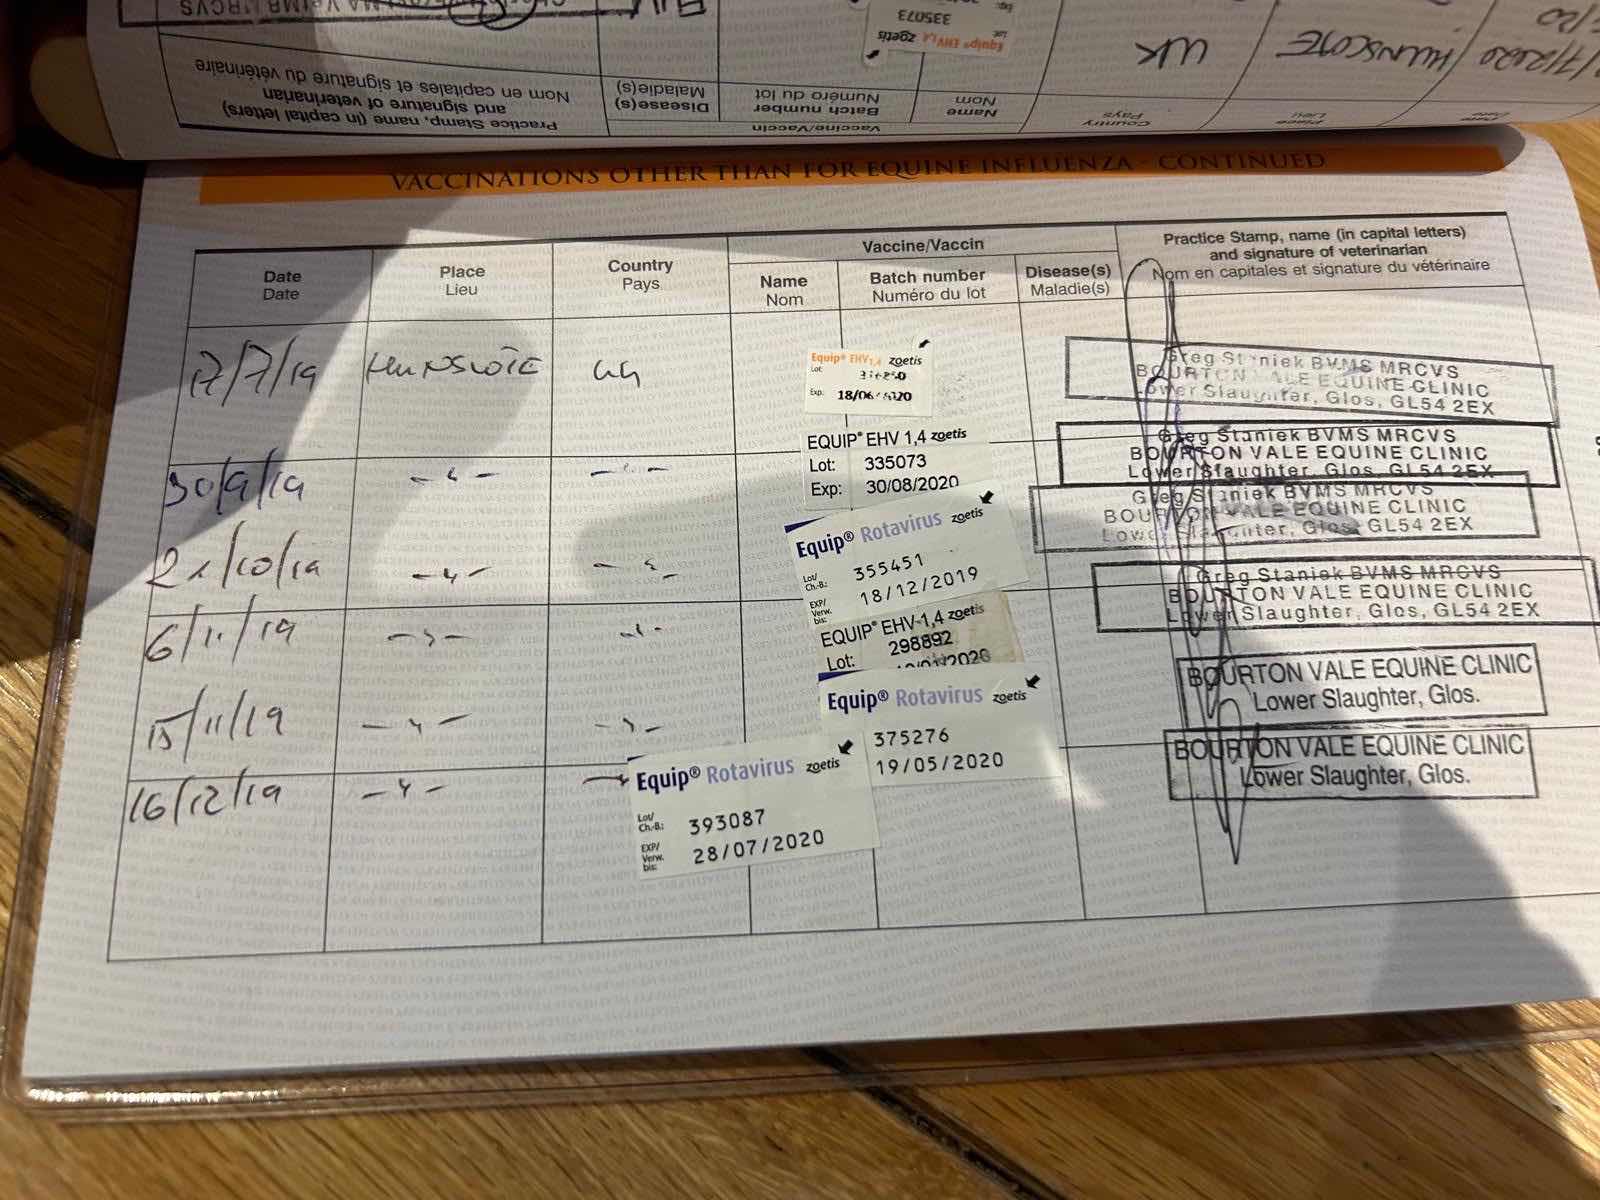 335073
Equip® EHV1,4 zoetis
UK
HUNSCOTE
7/2020
Practice Stamp, name (in capital letters)
and signature of veterinarian
Nom en capitales et signature du vétérinaire
Disease(s)
Maladie(s)
Batch number
Numéro du lot
Name
Nom
Vaccine/Vaccin
Country
Pays
Place
Lieu
Date
Date
VACCINATIONS OTHER THAN FOR EQUINE INFLUENZA - CONTINUED
Date
Date
Place
Lieu
Country
Pays
Vaccine/Vaccin
Name
Nom
Batch number
Numéro du lot
Disease(s)
Maladie(s)
Practice Stamp, name (in capital letters)
and signature of veterinarian
Nom en capitales et signature du vétérinaire
17/7/19
HUNSCOTE
UK
Equip® EHV1,4 zoetis
Lot:
Exp: 18/06/2020
Greg Staniek BVMS MRCVS
BOURTON VALE EQUINE CLINIC
Lower Slaughter, Glos, GL54 2EX
30/9/19
EQUIP® EHV 1,4 zoetis
Lot: 335073
Exp: 30/08/2020
Greg Staniek BVMS MRCVS
BOURTON VALE EQUINE CLINIC
Lower Slaughter, Glos, GL54 2EX
21/10/19
Equip® Rotavirus zoetis
Lot/
Ch.-B.: 355451
EXP/
Verw.
bis: 18/12/2019
Greg Staniek BVMS MRCVS
BOURTON VALE EQUINE CLINIC
Lower Slaughter, Glos, GL54 2EX
6/11/19
EQUIP® EHV-1,4 zoetis
Lot: 298892
Greg Staniek BVMS MRCVS
BOURTON VALE EQUINE CLINIC
Lower Slaughter, Glos, GL54 2EX
15/11/19
Equip® Rotavirus zoetis
375276
19/05/2020
BOURTON VALE EQUINE CLINIC
Lower Slaughter, Glos.
16/12/19
Equip® Rotavirus zoetis
Lot/
Ch.-B.: 393087
EXP/
Verw.
bis: 28/07/2020
BOURTON VALE EQUINE CLINIC
Lower Slaughter, Glos.